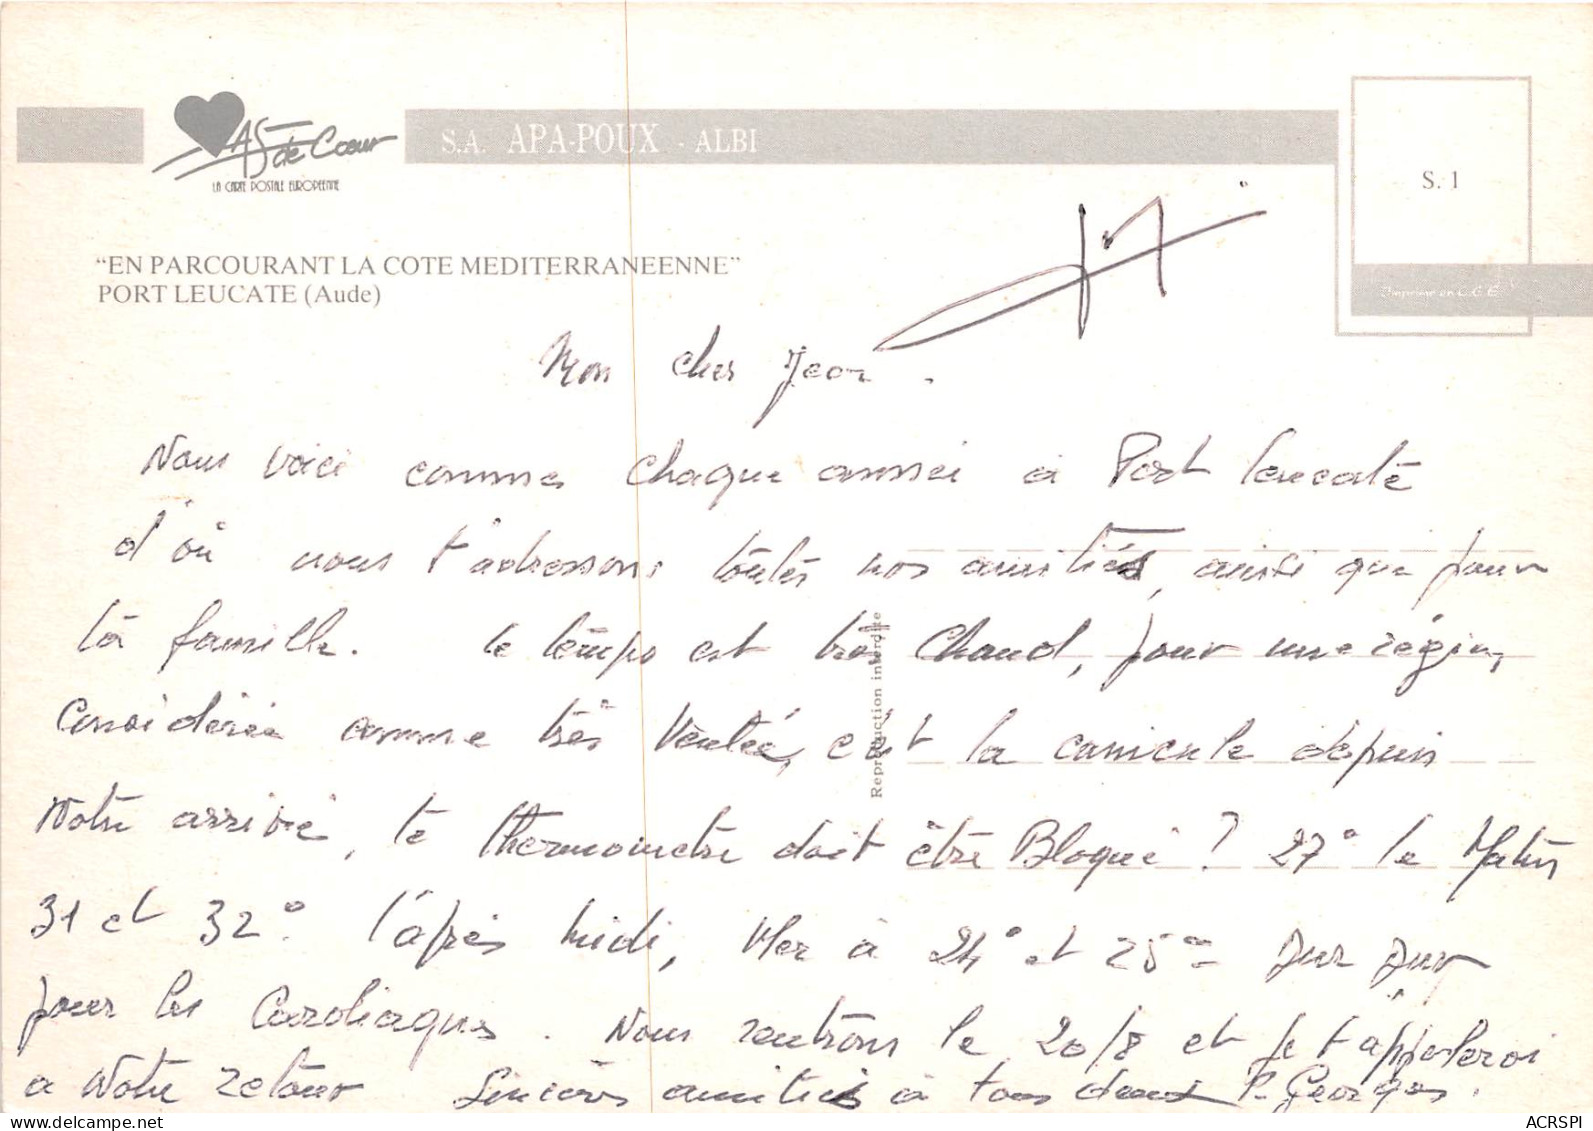 AS de Cœur
LA CARTE POSTALE EUROPEENNE
S.A. APA-POUX - ALBI
S. 1
Imprimé en C.E.E.
“EN PARCOURANT LA COTE MEDITERRANEENNE”
PORT LEUCATE (Aude)
Reproduction interdite
Mon cher Jean.
Nous voici comme chaque année à Port Leucate
d'où nous t'adressons toutes nos amitiés, ainsi que pour
ta famille. Le temps est très chaud, pour une région
considérée comme très ventée, c'est la canicule depuis
notre arrivée, le thermomètre doit être Bloqué ? 27° le Matin
31 et 32° l'après midi, Mer à 24° et 25° = Dur Dur
pour les Cardiaques. Nous rentrons le 20/8 et je t'appelerai
a notre retour Sincères amitiés à tous deux P. Georges.
ACRSPI